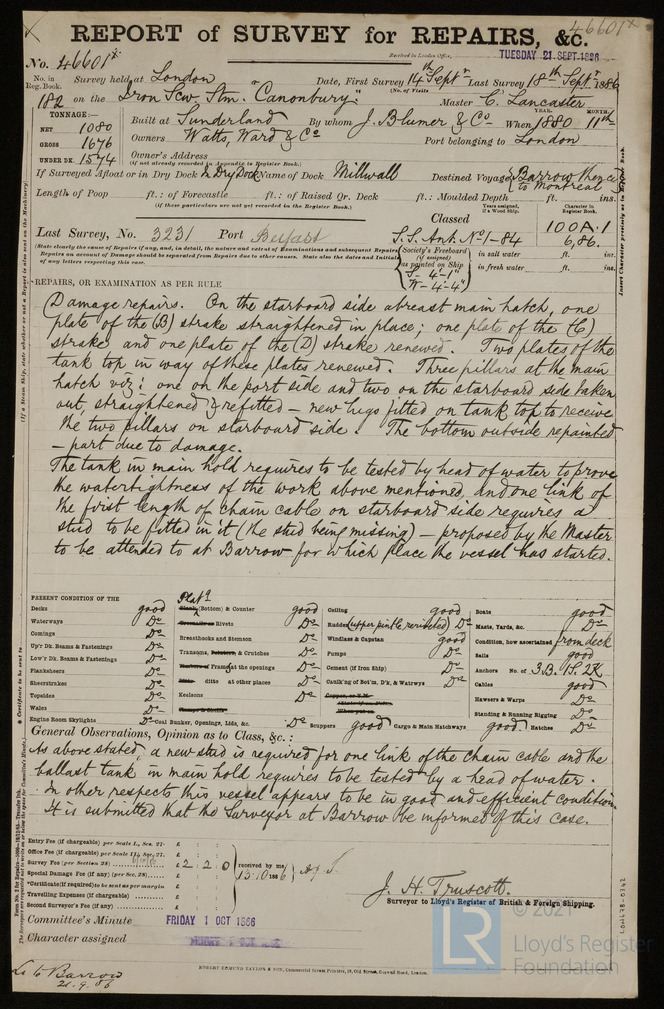 46601x
REPORT of SURVEY for REPAIRS, &c.
Received in London Office, TUESDAY 21 SEPT. 1886
No. 46601x
No. in Reg. Book.
Survey held at London Date, First Survey 14th Septr Last Survey 18th Septr 1886
(No. of Visits
182 on the Iron Scw. Stm. "Canonbury" Master C. Lancaster
TONNAGE:—
NET 1080
GROSS 1676
UNDER DK. 1574
YEAR. MONTH.
Built at Sunderland By whom J. Blumer & Co. When 1880 11th
Owners Watts, Ward & Co Port belonging to London
Owner's Address
(if not already recorded in Appendix to Register Book.)
If Surveyed Afloat or in Dry Dock In Dry Dock Name of Dock Millwall Destined Voyage Barrow thence to Montreal
Length of Poop ft.: of Forecastle ft.: of Raised Qr. Deck ft.: Moulded Depth ft. ins.
(if these particulars are not yet recorded in the Register Book.)
Years assigned, if a Wood Ship. Character in Register Book.
Classed 100A.1
Last Survey, No. 3231 Port Belfast S.S. Ant. No 1-84 6,86.
(State clearly the cause of Repairs if any, and, in detail, the nature and extent of Examinations and subsequent Repairs
Repairs on account of Damage should be separated from Repairs due to other causes. State also the dates and Initials
of any letters respecting this case.
Society's Freeboard (if assigned) as painted on Ship
S- 4'-1"
W- 4'-4"
in salt water ft. ins.
in fresh water ft. ins.
REPAIRS, OR EXAMINATION AS PER RULE
Damage repairs. On the starboard side abreast main hatch, one
plate of the (B) strake straightened in place; one plate of the (C)
strake and one plate of the (D) strake renewed. Two plates of the
tank top in way of these plates renewed. Three pillars at the main
hatch viz: one on the port side and two on the starboard side taken
out, straightened & refitted – new lugs fitted on tank top to receive
the two pillars on starboard side. The bottom outside repainted
– part due to damage.
The tank in main hold requires to be tested by head of water to prove
the watertightness of the work above mentioned, and one link of
the first length of chain cable on starboard side requires a
stud to be fitted in it (the stud being missing) – proposed by the Master
to be attended to at Barrow for which place the vessel has started.
PRESENT CONDITION OF THE
Decks good
Waterways Do
Comings Do
Up'r Dk. Beams & Fastenings Do
Low'r Dk. Beams & Fastenings Do
Planksheers Do
Sheerstrakes Do
Topsides Do
Wales Do
Engine Room Skylights Do
Platg
Plank (Bottom) & Counter good
Rivets Do
Breasthooks and Stemson Do
Transoms, & Crutches Do
Frames at the openings Do
ditto at other places Do
Keelsons Do
Coal Bunker, Openings, Lids, &c. Do
Ceiling good
Rudder (upper pintle reriveted) Do
Windlass & Capstan good
Pumps Do
Cement (if Iron Ship) Do
Caulk'ng of Bot'm, D'k, & Watrw'ys Do
Scuppers good Cargo & Main Hatchways good Hatches Do
Boats good
Masts, Yards, &c. Do
Condition, how ascertained from deck
Sails good
Anchors No. of 3B. 1S. 2K
Cables good
Hawsers & Warps Do
Standing & Running Rigging Do
General Observations, Opinion as to Class, &c.:
As above stated, a new stud is required for one link of the chain cable and the
ballast tank in main hold requires to be tested by a head of water.
In other respects this vessel appears to be in good and efficient condition.
It is submitted that the Surveyor at Barrow be informed of this case.
Entry Fee (if chargeable) per Scale I., Sec. 27. £
Office Fee (if chargeable) per Scale II., Sec. 27. £
Survey Fee (per Section 28) £ 2 : 2 : 0
Special Damage Fee (if any) (per Sec. 28) £
*Certificate (if required) to be sent as per margin
Travelling Expenses (if chargeable) £
Second Surveyor's Fee (if any) £
received by me,
13.10.1886
J. H. Truscott.
Surveyor to Lloyd's Register of British & Foreign Shipping.
Committee's Minute FRIDAY 1 OCT 1886
Character assigned
ROBERT EDMUND TAYLOR & SON, Commercial Steam Printers, 19, Old Street, Goswell Road, London.
Barrow
21.9.86
© 2021
LR
Lloyd's Register
Foundation
LON678-0342